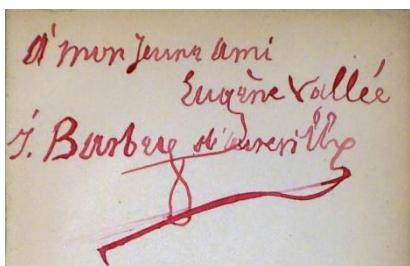 à mon jeune ami
Eugène Vallée
J. Barbey d'aurevilly